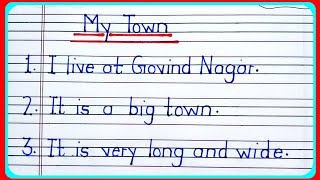 My Town
1. I live at Govind Nagar.
2. It is a big town.
3. It is very long and wide.